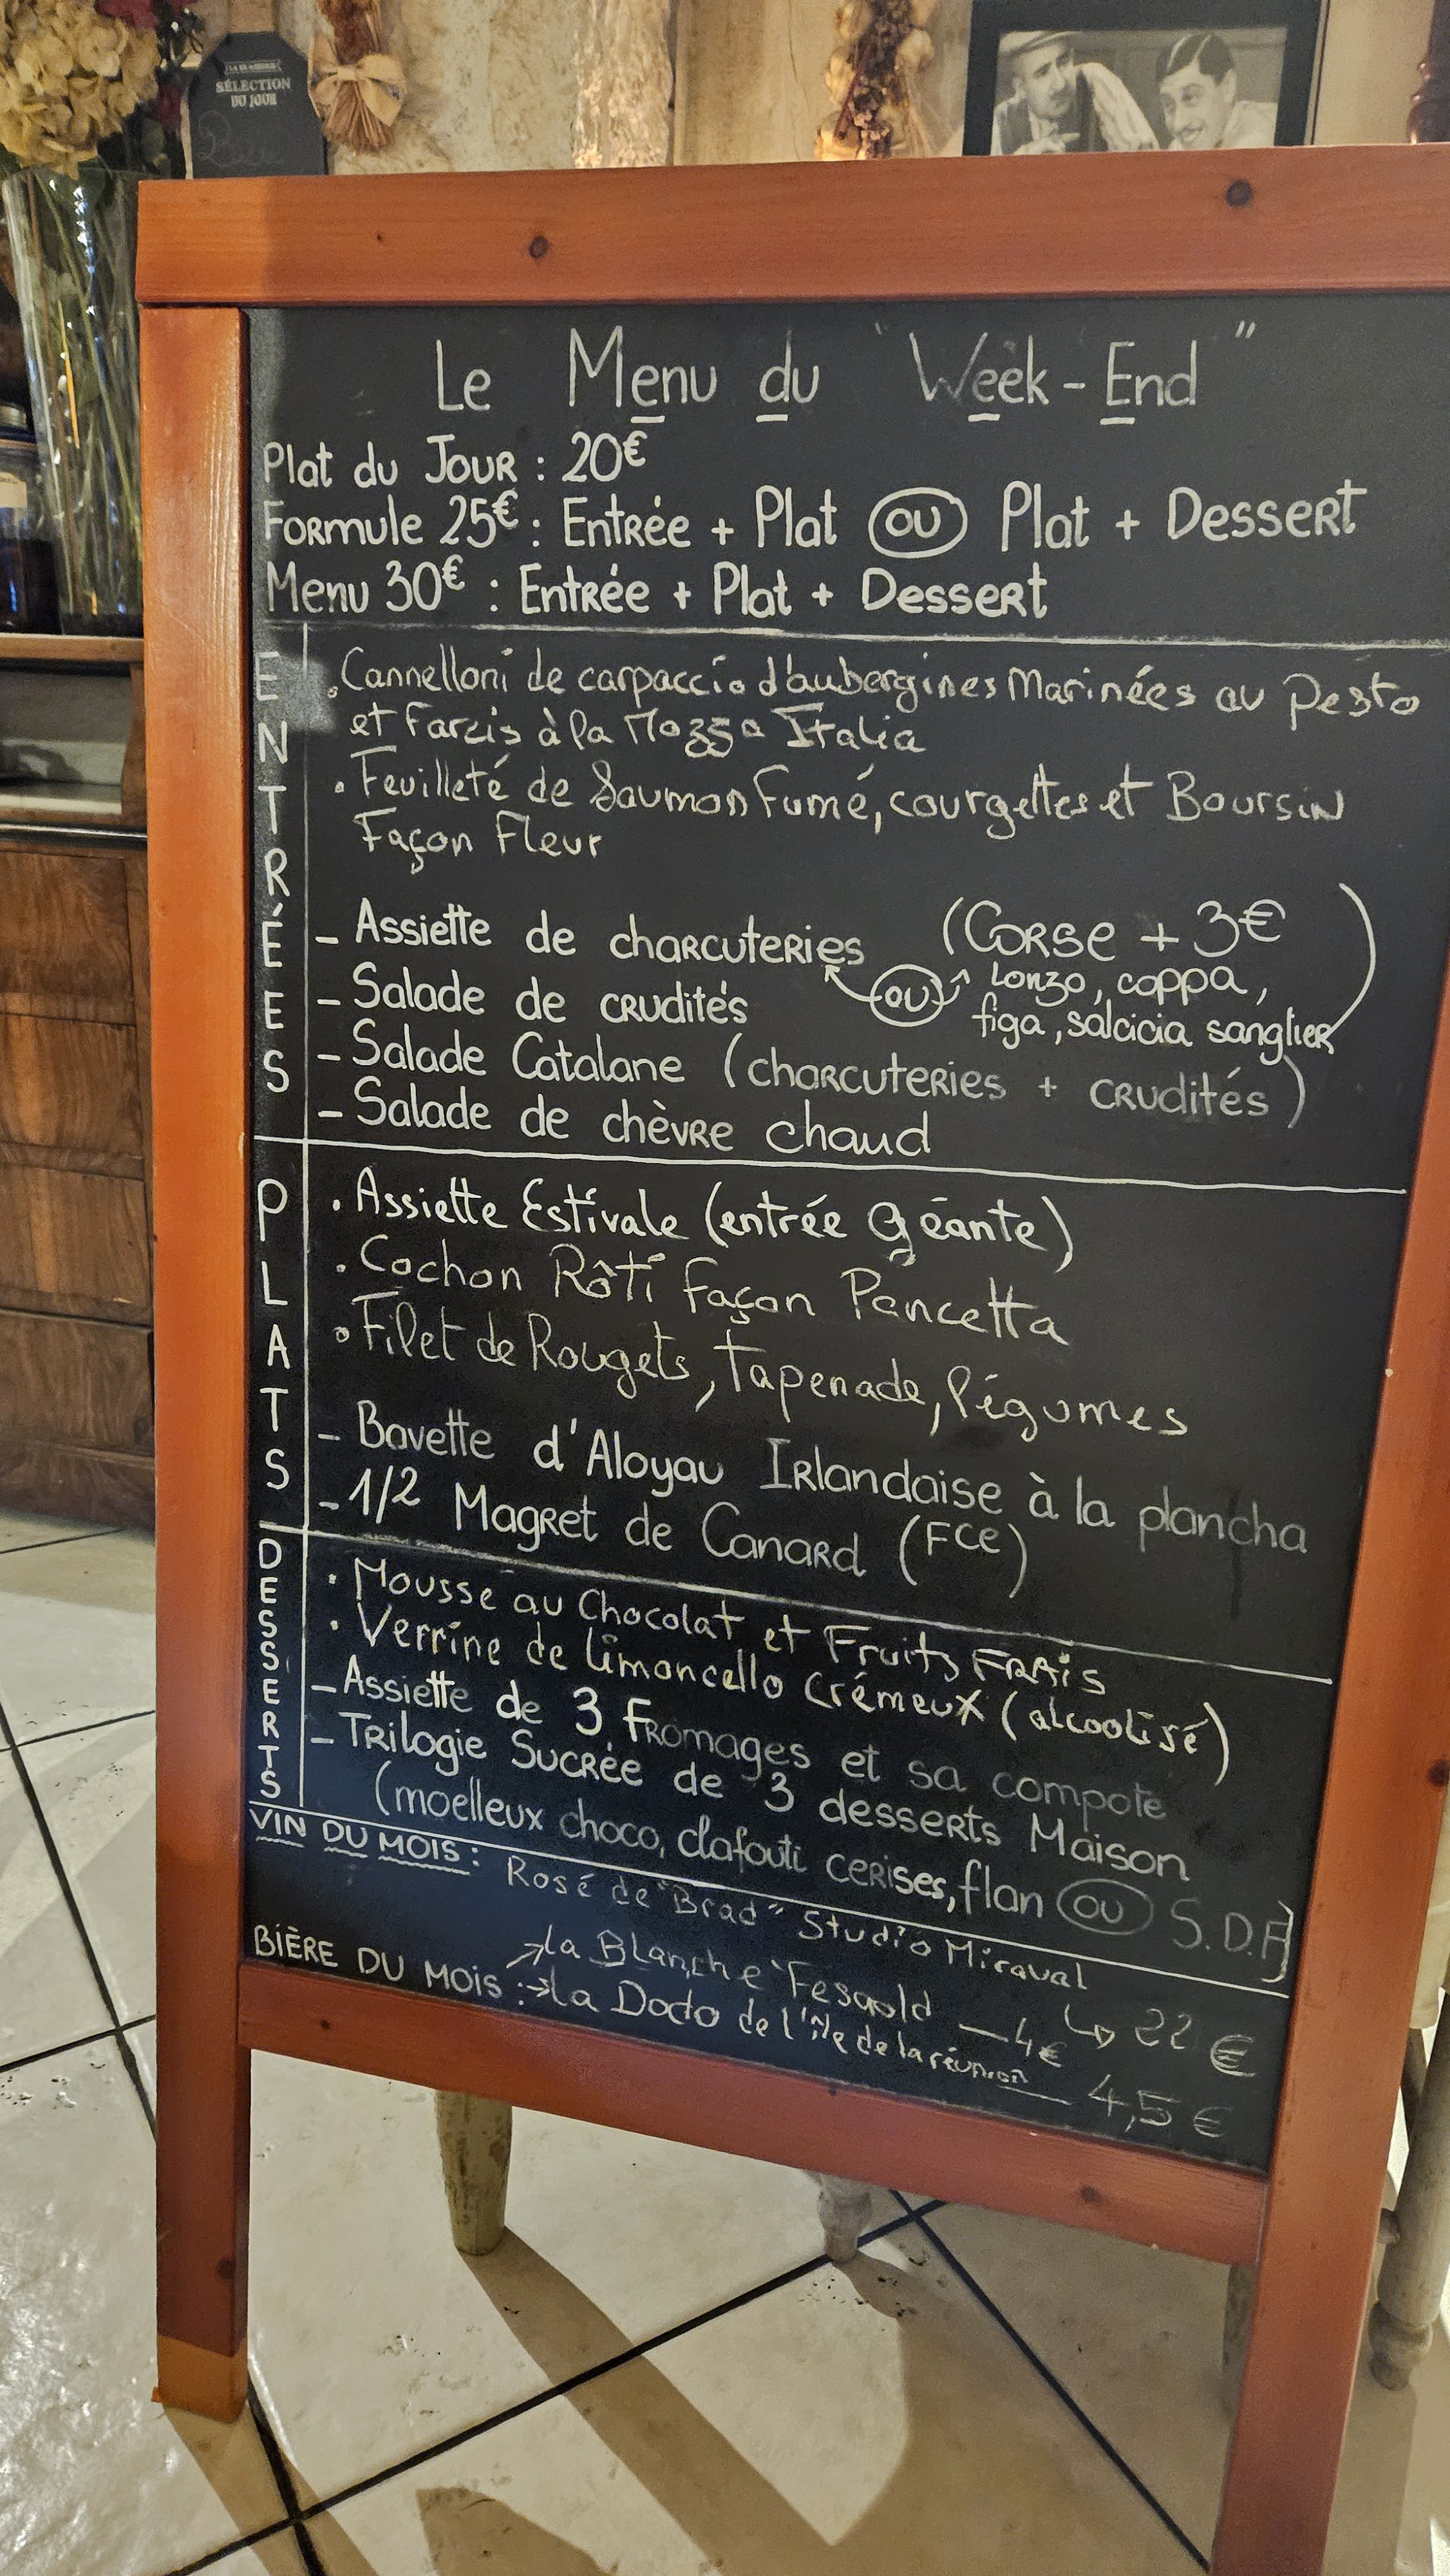 SÉLECTION
DU JOUR
Le Menu du "Week-End"
Plat du JOUR : 20€
Formule 25€ : Entrée + Plat OU Plat + Dessert
Menu 30€ : Entrée + Plat + Dessert
ENTRÉES
. Cannelloni de carpaccio d'aubergines Marinées au Pesto
et Farcis à la Mozza Italia
. Feuilleté de Saumon Fumé, courgettes et Boursin
Façon Fleur
- Assiette de charcuteries (Corse + 3€
OU Lonzo, coppa,
figa, salcicia sanglier)
- Salade de crudités
- Salade Catalane (charcuteries + crudités)
- Salade de chèvre chaud
PLATS
. Assiette Estivale (entrée géante)
. Cochon Rôti façon Pancetta
. Filet de Rougets, tapenade, légumes
- Bavette d'Aloyau Irlandaise à la plancha
- 1/2 Magret de Canard (FCE)
DESSERTS
. Mousse au Chocolat et Fruits Frais
. Verrine de limoncello Crémeux (alcoolisé)
- Assiette de 3 fromages et sa compote
- Trilogie Sucrée de 3 desserts Maison
(moelleux choco, clafouti cerises, flan OU S.D.F)
VIN DU MOIS : Rosé de "Brad" Studio Miraval
↳ 22 €
BIÈRE DU MOIS : → la Blanche Fesgold — 4€
→ la Dodo de l'île de la réunion — 4,5 €